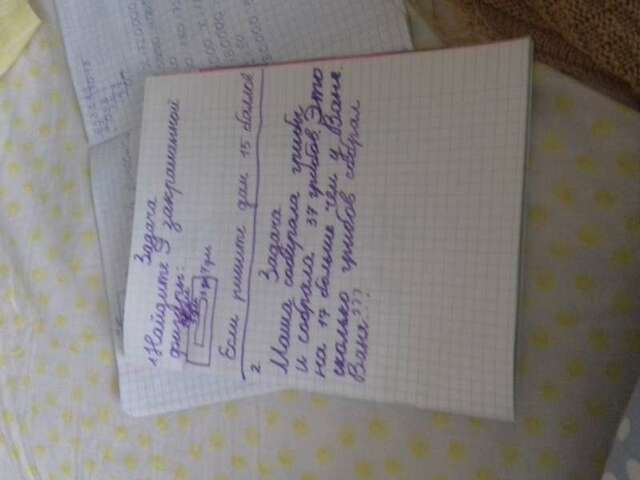 Задача
1 Найдите S закрашенной
фигуры:
Если решите дам 15 балов
2 Задача
Маша собирала грибы
и собрала 37 грибов. Это
на 17 больше чем у Вани.
сколько грибов собрал
Ваня???